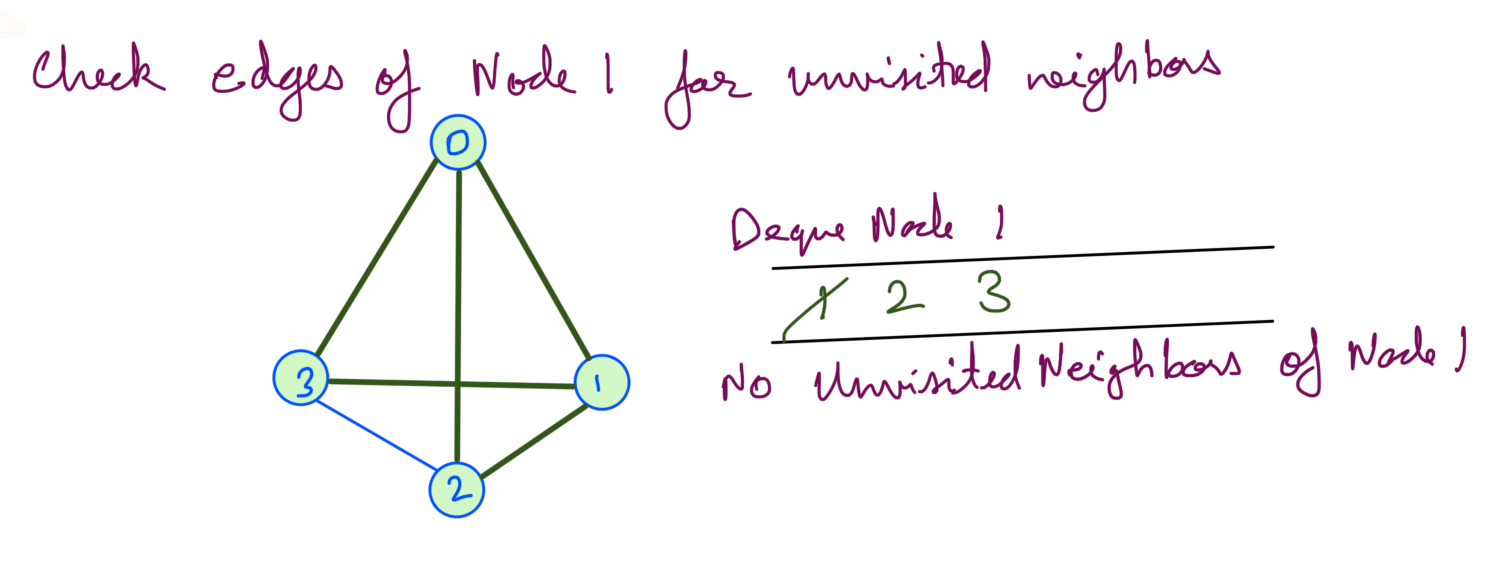 Check edges of Node 1 for unvisited neighbors
0
Deque Node 1
1 2 3
No Unvisited Neighbors of Node 1
3
1
2